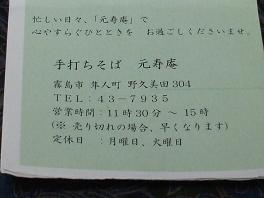 忙しい日々、「元寿庵」で
心やすらぐひとときを　お過ごしくださいませ。
手打ちそば　元寿庵
霧島市 隼人町 野久美田304
TEL：43－7935
営業時間：11時30分 ～ 15時
(※ 売り切れの場合、早くなります)
定休日　：月曜日、火曜日